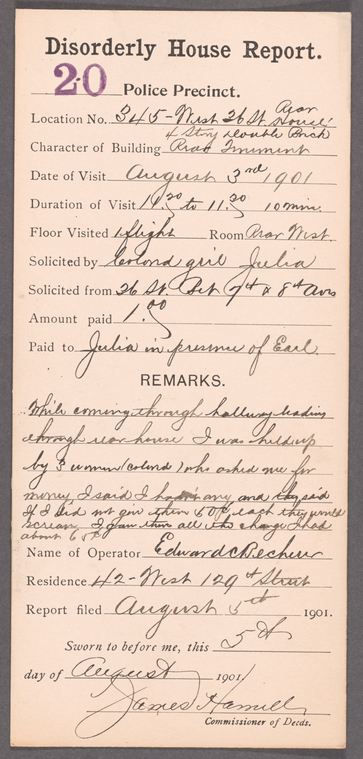 Disorderly House Report.
20 Police Precinct.
Location No. 345 - West 36 St. Rear House
4 Story double Brick
Character of Building Rear Tenement
Date of Visit August 3rd 1901
Duration of Visit 11.20 to 11.30 10 min.
Floor Visited 1 flight Room Rear West.
Solicited by Colored girl Julia
Solicited from 36 St. Bet 7th & 8th Avs
Amount paid 1.00
Paid to Julia in presence of Earl.
REMARKS.
While coming through hallway leading
through rear house I was held up
by 3 women (colored) who asked me for
money I said I hadn't any and they said
If I did not give them 60¢ each they would
scream. I gave them all the change I had
about 65¢
Name of Operator Edward C Becherer
Residence 42 - West 129th Street
Report filed August 5th 1901.
Sworn to before me, this 5th
day of August 1901
James Hamill
Commissioner of Deeds.